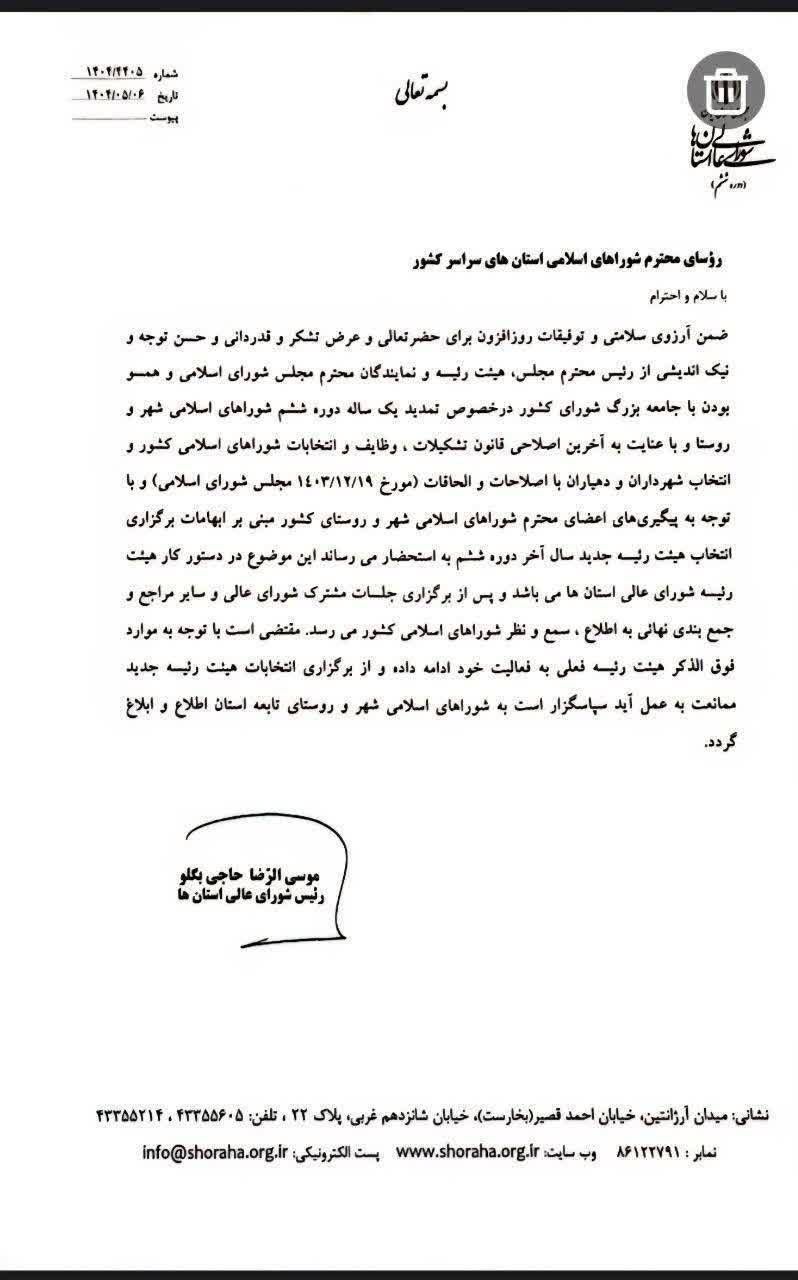 شماره ۱۴۰۴/۴۴۰۵
تاریخ ۱۴۰۴/۰۵/۰۶
پیوست
بسمه تعالی
شورای عالی استان‌ها
(دوره ششم)
رؤسای محترم شوراهای اسلامی استان های سراسر کشور
با سلام و احترام
ضمن آرزوی سلامتی و توفیقات روزافزون برای حضرتعالی و عرض تشکر و قدردانی و حسن توجه و
نیک اندیشی از رئیس محترم مجلس، هیئت رئیسه و نمایندگان محترم مجلس شورای اسلامی و همسو
بودن با جامعه بزرگ شورای کشور درخصوص تمدید یک ساله دوره ششم شوراهای اسلامی شهر و
روستا و با عنایت به آخرین اصلاحی قانون تشکیلات ، وظایف و انتخابات شوراهای اسلامی کشور و
انتخاب شهرداران و دهیاران با اصلاحات و الحاقات (مورخ ۱۴۰۳/۱۲/۱۹ مجلس شورای اسلامی) و با
توجه به پیگیری‌های اعضای محترم شوراهای اسلامی شهر و روستای کشور مبنی بر ابهامات برگزاری
انتخاب هیئت رئیسه جدید سال آخر دوره ششم به استحضار می رساند این موضوع در دستور کار هیئت
رئیسه شورای عالی استان ها می باشد و پس از برگزاری جلسات مشترک شورای عالی و سایر مراجع و
جمع بندی نهائی به اطلاع ، سمع و نظر شوراهای اسلامی کشور می رسد. مقتضی است با توجه به موارد
فوق الذکر هیئت رئیسه فعلی به فعالیت خود ادامه داده و از برگزاری انتخابات هیئت رئیسه جدید
ممانعت به عمل آید سپاسگزار است به شوراهای اسلامی شهر و روستای تابعه استان اطلاع و ابلاغ
گردد.
موسی الرّضا حاجی بگلو
رئیس شورای عالی استان ها
نشانی: میدان آرژانتین، خیابان احمد قصیر(بخارست)، خیابان شانزدهم غربی، پلاک ۲۲ ، تلفن: ۴۳۳۵۵۶۰۵ ، ۴۳۳۵۵۲۱۴
نمابر : ۸۶۱۲۲۷۹۱ وب سایت: www.shoraha.org.ir پست الکترونیکی: info@shoraha.org.ir